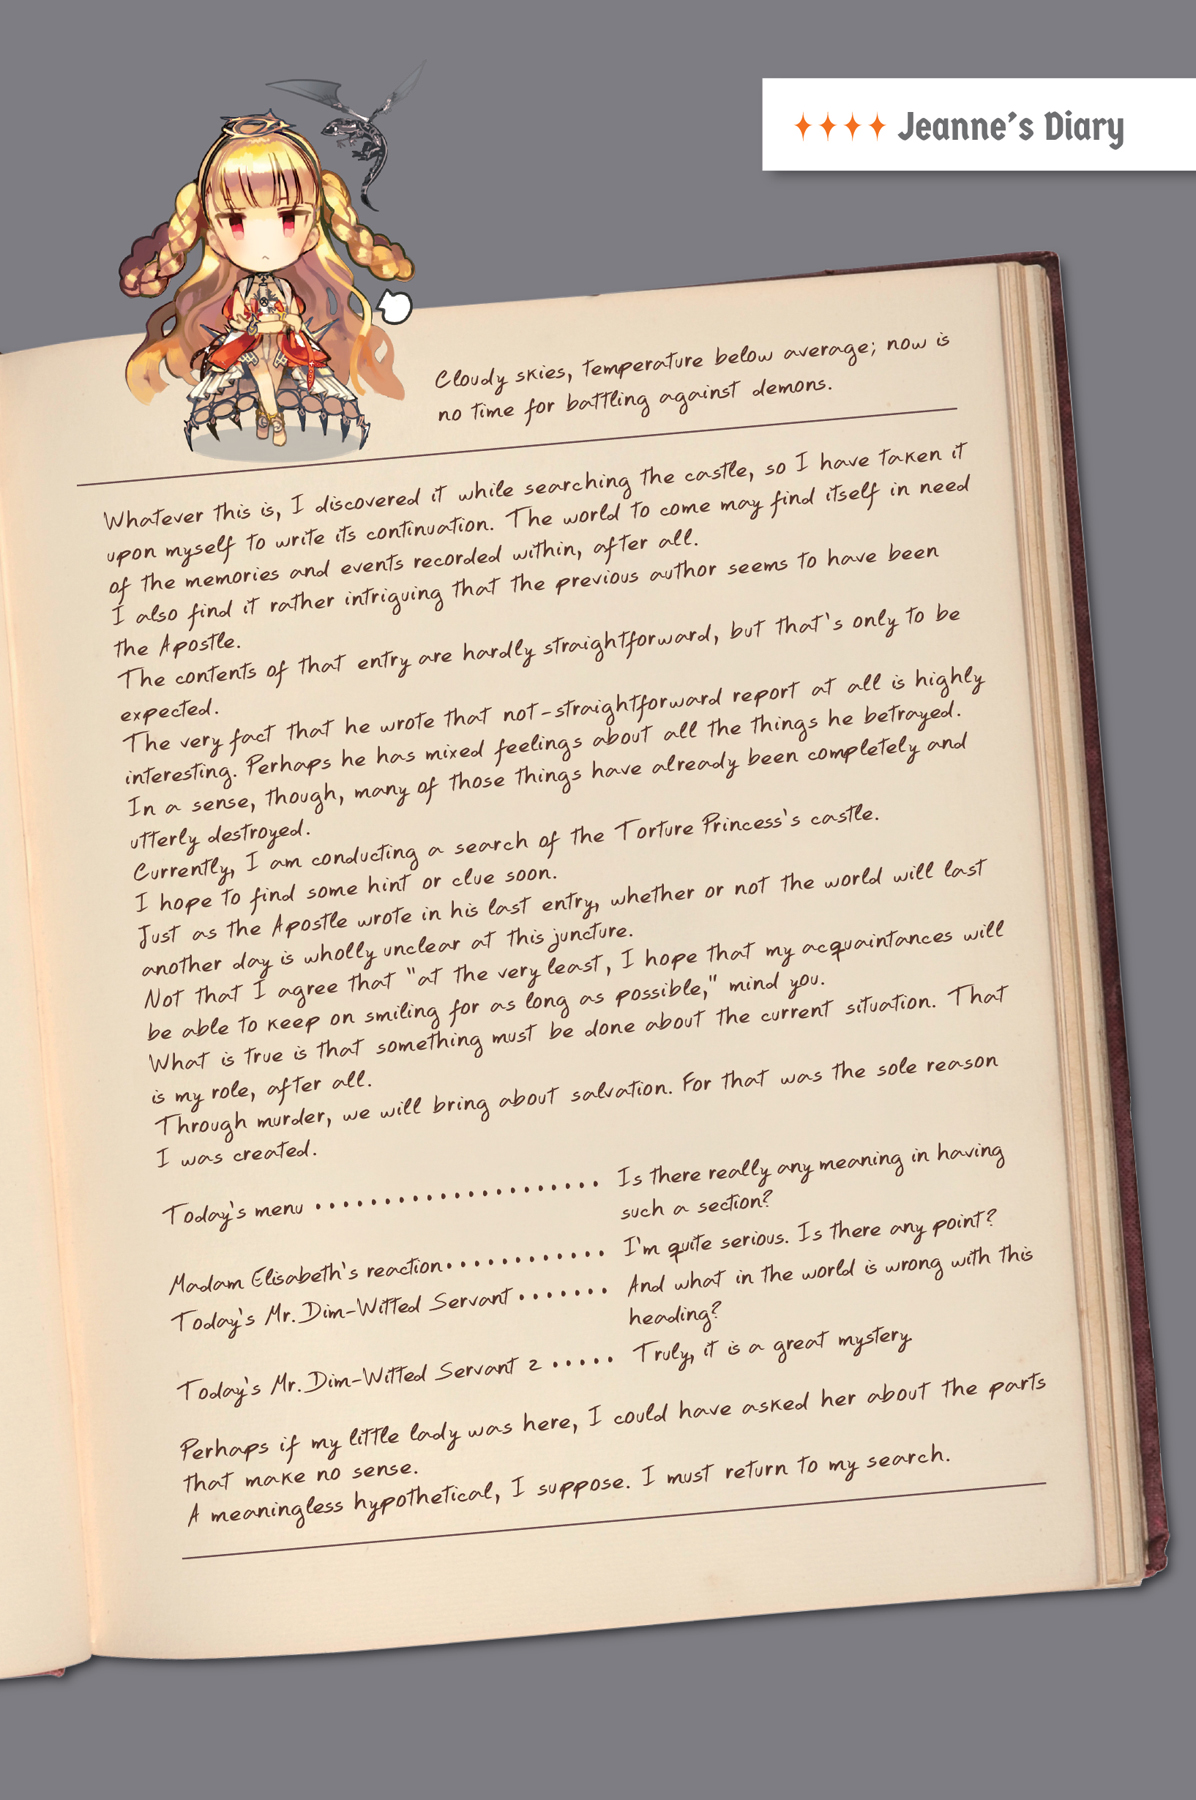 Jeanne's Diary
Cloudy skies, temperature below average; now is
no time for battling against demons.
Whatever this is, I discovered it while searching the castle, so I have taken it
upon myself to write its continuation. The world to come may find itself in need
of the memories and events recorded within, after all.
I also find it rather intriguing that the previous author seems to have been
the Apostle.
The contents of that entry are hardly straightforward, but that's only to be
expected.
The very fact that he wrote that not-straightforward report at all is highly
interesting. Perhaps he has mixed feelings about all the things he betrayed.
In a sense, though, many of those things have already been completely and
utterly destroyed.
Currently, I am conducting a search of the Torture Princess's castle.
I hope to find some hint or clue soon.
Just as the Apostle wrote in his last entry, whether or not the world will last
another day is wholly unclear at this juncture.
Not that I agree that "at the very least, I hope that my acquaintances will
be able to keep on smiling for as long as possible," mind you.
What is true is that something must be done about the current situation. That
is my role, after all.
Through murder, we will bring about salvation. For that was the sole reason
I was created.
Today's menu ..................... Is there really any meaning in having
such a section?
Madam Elisabeth's reaction............ I'm quite serious. Is there any point?
Today's Mr. Dim-Witted Servant ....... And what in the world is wrong with this
heading?
Today's Mr. Dim-Witted Servant 2 ..... Truly, it is a great mystery
Perhaps if my little lady was here, I could have asked her about the parts
that make no sense.
A meaningless hypothetical, I suppose. I must return to my search.